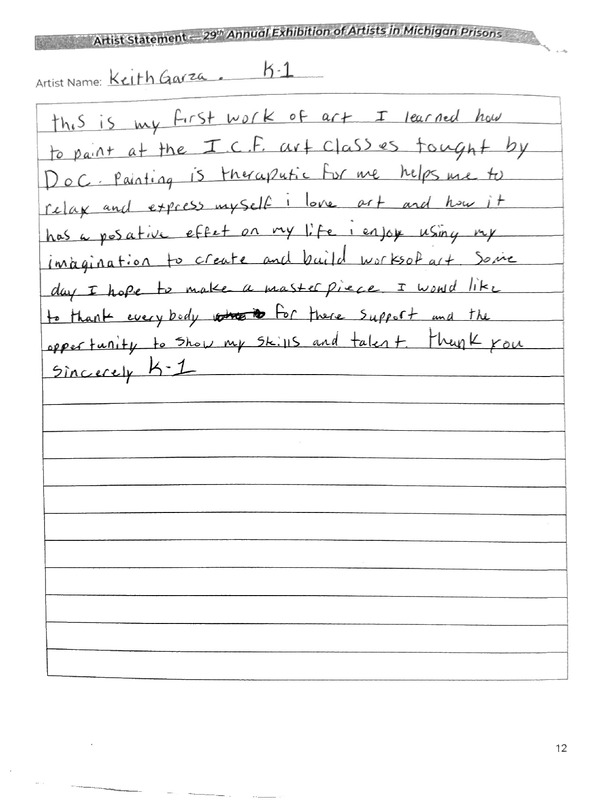 Artist Statement — 29th Annual Exhibition of Artists in Michigan Prisons
Artist Name: Keith Garza. K-1
this is my first work of art I learned how
to paint at the I.C.F. art classes tought by
DOC. Painting is theraputic for me helps me to
relax and express myself i love art and how it
has a posative effet on my life i enjoy using my
imagination to create and build works of art. Some
day I hope to make a masterpiece. I would like
to thank everybody for there support and the
opportunity to show my skills and talent. thank you
sincerely K-1
12